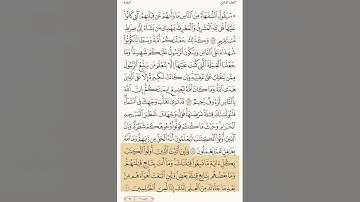 الجزء الثاني البقرة
۞ سَيَقُولُ ٱلسُّفَهَآءُ مِنَ ٱلنَّاسِ مَا وَلَّىٰهُمْ عَن قِبْلَتِهِمُ ٱلَّتِى كَانُوا۟
عَلَيْهَا ۚ قُل لِّلَّهِ ٱلْمَشْرِقُ وَٱلْمَغْرِبُ ۚ يَهْدِى مَن يَشَآءُ إِلَىٰ صِرَٰطٍ
مُّسْتَقِيمٍ ١٤٢ وَكَذَٰلِكَ جَعَلْنَٰكُمْ أُمَّةً وَسَطًا لِّتَكُونُوا۟
شُهَدَآءَ عَلَى ٱلنَّاسِ وَيَكُونَ ٱلرَّسُولُ عَلَيْكُمْ شَهِيدًا ۗ وَمَا
جَعَلْنَا ٱلْقِبْلَةَ ٱلَّتِى كُنتَ عَلَيْهَآ إِلَّا لِنَعْلَمَ مَن يَتَّبِعُ ٱلرَّسُولَ
مِمَّن يَنقَلِبُ عَلَىٰ عَقِبَيْهِ ۚ وَإِن كَانَتْ لَكَبِيرَةً إِلَّا عَلَى ٱلَّذِينَ
هَدَى ٱللَّهُ ۗ وَمَا كَانَ ٱللَّهُ لِيُضِيعَ إِيمَٰنَكُمْ ۚ إِنَّ ٱللَّهَ
بِٱلنَّاسِ لَرَءُوفٌ رَّحِيمٌ ١٤٣ قَدْ نَرَىٰ تَقَلُّبَ وَجْهِكَ فِى ٱلسَّمَآءِ ۖ
فَلَنُوَلِّيَنَّكَ قِبْلَةً تَرْضَىٰهَا ۚ فَوَلِّ وَجْهَكَ شَطْرَ ٱلْمَسْجِدِ
ٱلْحَرَامِ ۚ وَحَيْثُ مَا كُنتُمْ فَوَلُّوا۟ وُجُوهَكُمْ شَطْرَهُۥ ۗ وَإِنَّ
ٱلَّذِينَ أُوتُوا۟ ٱلْكِتَٰبَ لَيَعْلَمُونَ أَنَّهُ ٱلْحَقُّ مِن رَّبِّهِمْ ۗ وَمَا ٱللَّهُ
بِغَٰفِلٍ عَمَّا يَعْمَلُونَ ١٤٤ وَلَئِنْ أَتَيْتَ ٱلَّذِينَ أُوتُوا۟ ٱلْكِتَٰبَ
بِكُلِّ ءَايَةٍ مَّا تَبِعُوا۟ قِبْلَتَكَ ۚ وَمَآ أَنتَ بِتَابِعٍ قِبْلَتَهُمْ ۚ
وَمَا بَعْضُهُم بِتَابِعٍ قِبْلَةَ بَعْضٍ ۚ وَلَئِنِ ٱتَّبَعْتَ أَهْوَآءَهُم مِّنۢ
بَعْدِ مَا جَآءَكَ مِنَ ٱلْعِلْمِ ۙ إِنَّكَ إِذًا لَّمِنَ ٱلظَّٰلِمِينَ ١٤٥